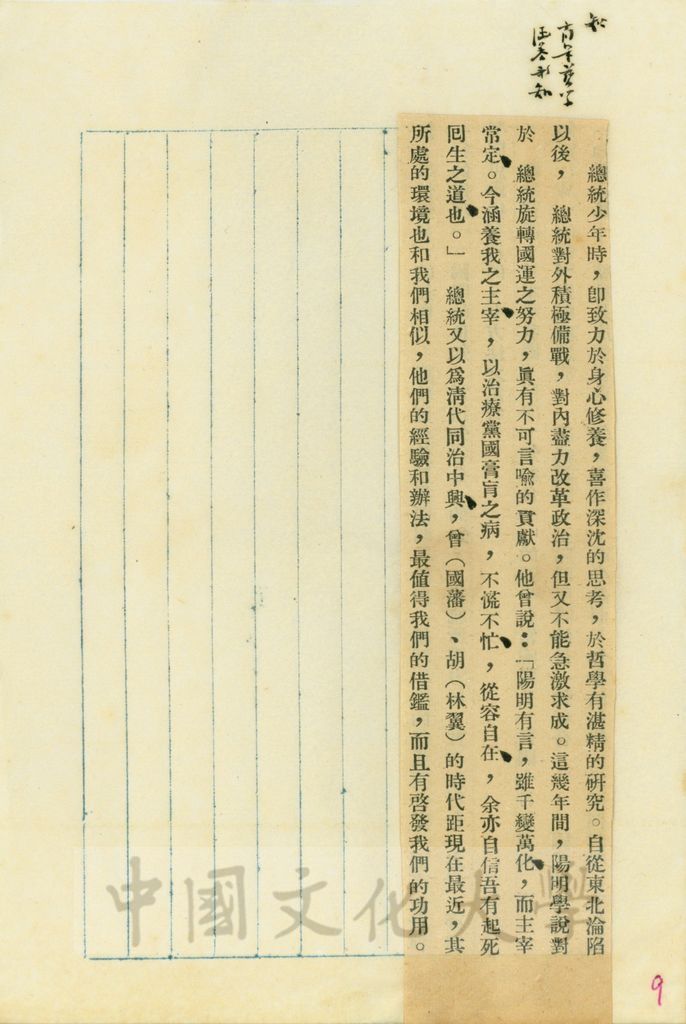 總統少年時，卽致力於身心修養，喜作深沈的思考，於哲學有湛精的研究。自從東北淪陷
以後，　總統對外積極備戰，對內盡力改革政治，但又不能急激求成。這幾年間，陽明學說對
於　總統旋轉國運之努力，眞有不可言喩的貢獻。他曾說：「陽明有言，雖千變萬化，而主宰
常定。今涵養我之主宰，以治療黨國膏肓之病，不慌不忙，從容自在，余亦自信吾有起死
囘生之道也。」　總統又以爲淸代同治中興，曾（國藩）、胡（林翼）的時代距現在最近，其
所處的環境也和我們相似，他們的經驗和辦法，最值得我們的借鑑，而且有啓發我們的功用。
中國文化大學
9